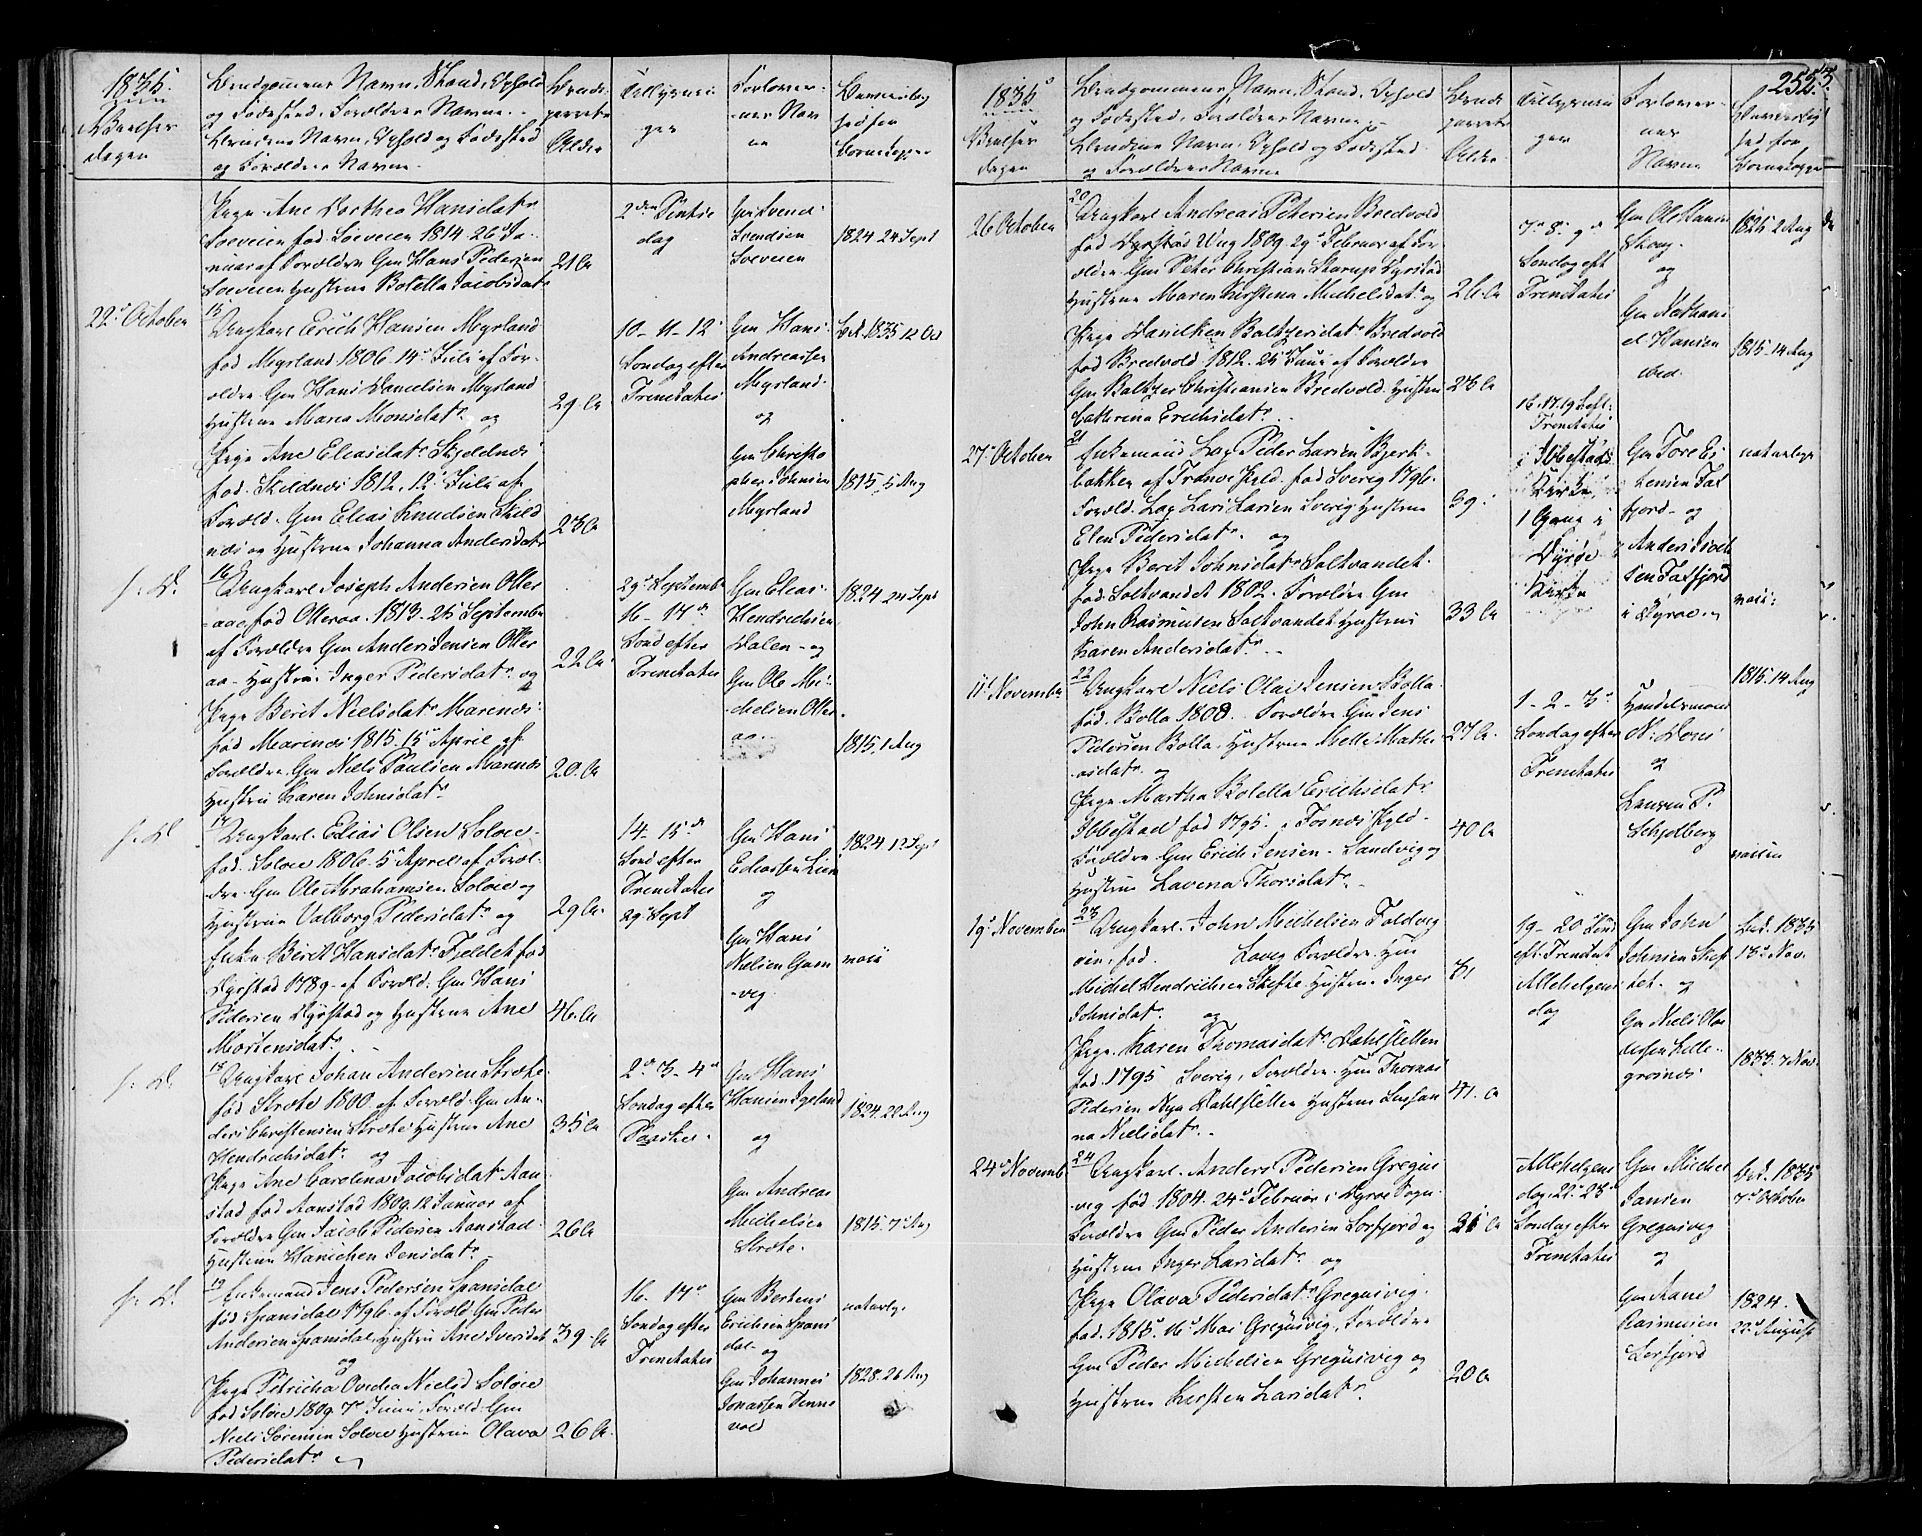 1835
Vielses
dagen
Brudgommens Navn, Stand, Ophold
og Fødested, Forældres Navne
Brudens Navn, Ophold og Fødested
og Forældres Navne
Brude
parrets
Alder
Tillysnin
ger
Forlover-
nes Nav
ne
Pige Ane Dorthea Hansdatr
Soeveien fød Soeveien 1814 26 Ja-
nuar af Forældre Gm Hans Pedersen
Soeveien Hustrue Bolella Jacobsdatr
21 Ar
2den Pintse
dag
Gm Svend
Svendsen
Soeveien
1824 24 Sept
22 October
15
Ungkarl Erich Hansen Myrland
fød Myrland 1806 14 Juli af For-
ældre Gm Hans Danielsen Myrland
Hustrue Maria Monsdatr og
29 Ar
10-11-12
Søndag efter
Trinitatis
Gm Hans
Andreassen
Myrland
og
1835 12 Oct
Pige Ane Eliasdatr Skjeldnes
fød Skeldnes 1812, 12 Juli af
Foræld. Gm Elias Knudsen Skield
nes og Hustrue Johanna Andersdatr
23 Ar
Gm Christo
pher Johnsen
Myrland
1815 5 Aug
s: D.
16
Ungkarl Joseph Andersen Otter
aae fød Otteraa 1813 25 September
af Forældre Gm Anders Jensen Otter
aa Hustrue Inger Pedersdatr og
22 Ar
29 Septemb
16-17
Sønd efter
Trinitatis
Gm Elias
Hendrichsen
Dalen og
Gm Ole Mi-
chelsen Otter
aa
1824 24 Sept
Pige Berit Nielsdatr Marenes
fød Marenes 1815 15 April af
Forældre Gm Niels Paulsen Marenes
Hustrue Karen Johnsdatr
20 Ar
1815 1 Aug
s: D.
17
Ungkarl Elias Olsen Soløie
fød Soløie 1806 5 April af Foræl-
dre Gm Ole Abrahamsen Soløie og
Hustrue Valborg Pedersdatr og
29 Ar
14-15
Sønd efter
Trinitatis
29 Sept
Gm Hans
Eliassen Lien
og
1824 19 Sept
Enke Berit Hansdatr Fjeldet fød
Dyrstad 1789 af Foræld. Gm Hans
Pedersen Dyrstad og Hustrue Ane
Mortensdatr
46 Ar
Gm Hans
Nielsen Gam
vig
s: D.
18
Ungkarl Johan Andersen Strøte
fød Strøte 1800 af Foræld. Gm An-
ders Christensen Strøte Hustrue Ane
Hendrichsdatr og
35 Ar
2 3-4
Søndag efter
Paaske
Gm Hans
Hansen Igeland
og
1824 22 Aug
Pige Ane Carolina Jacobsdatr Aan-
stad fød Aanstad 1809 12 Januar af
Forældre Gm Jacob Pedersen Aanstad
Hustrue Hanichen Jensdatr
26 Ar
Gm Andreas
Michelsen
Strøte
1815 7 Aug
s: D.
19
Enkemand Jens Pedersen Spansdal
fød Spansdal 1796 af Foræld. Gm Peder
Andersen Spansdal Hustrue Ane Iversdat
og
39 Ar
16-17
Søndag efter
Trinitatis
Gm Bertens
Erichsen Spans
dal og
naturlige
Pige Petricha Ovedia Nielsd Soløie
fød Soløie 1809 7 Juni, Foræld. Gm
Niels Sørensen Soløie Hustrue Olava
Pedersdatr
26 Ar
Gm Johannes
Jonassen Tenne
vold
1828 26 Aug
252
1835
Vielses
dagen
Brudgommens Navn, Stand, Ophold
og Fødested, Forældres Navne
Brudens Navn, Ophold og Fødested
og Forældres Navne
Brude
parrets
Alder
Tillysnin
ger
Forlover-
nes
Navne
26 October
20
Ungkarl Andreas Petersen Bredvold
fød Dyrstad 1809 29 Februar af For
ældre Gm Peter Christian Starup Dyrstad
Hustrue Maren Kirstena Michelsdatr og
26 Ar
7 8 9
Søndag eft
Trinitatis
Gm Ole Hansen
Skoug
og
1825 2 Aug
Pige Handken Baltzersdatr Bredvold
fød Bredvold 1812 25 Juni af Forældre
Gm Baltzer Christiansen Bredvold Hustrue
Cathrina Erichsdatr
23 Ar
Gm Nathani
el Hansen
ibid.
1815 14 Aug
27 October
21
Enkemand Lap Peder Larsen Bjerk-
bakken af Tranøe Pgld fød Sverig 1796
Foræld. Lap Lars Larsen Sverig Hustrue
Elen Pedersdatr og
39
16.17.19 S eft
Trinitatis
i Ibbestads
Kirke
1 Gang i
Dyrøe
Kirke
Gm Tore Ei
lensen Fax
fjord og
Anders
sen Faxfjord
i Dyrøe
naturlige
Pige Berit Johnsdatr Saltvandet
fød Saltvandet 1802 Forældre Gm
John Rasmusen Saltvandet Hustrue
Karen Andersdatr
33 Ar
11 November
22
Ungkarl Niels Olai Jensen Bolla
fød Bolla 1808 Forældre Gm Jens
Pedersen Bolla, Hustrue Melli Mathi
asdatr og
27 Ar
1-2-3
Søndag efter
Trinitatis
Handelsmand
N: Dons
og
1815 14 Aug
Pige Martha Bolella Erichsdatr
Ibbestad fød 1795 i Fosnes Pgld
Forældre Gm Erich Jensen Sandvig og
Hustrue Lavena Thorsdatr
40 Ar
Lauzen P.
Schjelberg
19 November
23
Ungkarl John Michelsen Foldvig
fød Forældre Gm
Michel Hendrichsen Skefte Hustrue Inger
Johnsdatr og
31
19-20 Sønd
eft. Trinitat
Allehelgens
dag
Gm John
Johnsen Skef
tet og
1835
13 Nov.
Pige Karen Thomasdatr Dahlsletten
fød 1795 Sverig, Forældre Gm Thomas
Pedersen Nya Dahlsletten Hustrue Susan
na Nielsdatr
41 Ar
Gm Niels Ola
1833 7 Nov.
24 Novemb
24
Ungkarl Anders Pedersen Gregus
vig fød 1804 24 Februar i Dyrøe Sogn
Forældre Gm Peder Andersen Sørfjord og
Hustrue Inger Larsdatr og
31 Ar
Allehelgens
dag 22 23
Søndag efter
Trinitatis
Gm Michel
Jansen
Gregusvig
og
1835
7 October
Pige Olava Pedersdatr Gregusvig
fød 1815 16 Mai Gregusvig, Forældre
Gm Peder Michelsen Gregusvig og
Hustrue Kirsten Larsdatr
20 Ar
Gm Aane
Rasmusen
Sørfjord
1824
22 August